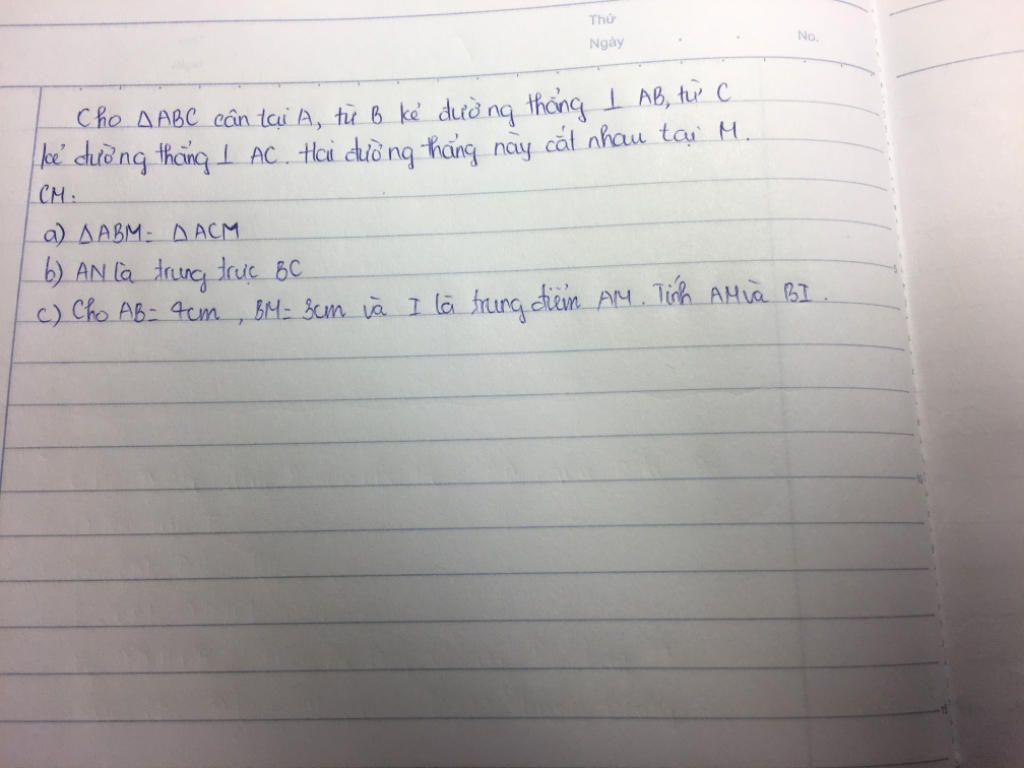 Thứ
Ngày
No.
Cho ΔABC cân tại A, từ B kẻ đường thẳng ⊥ AB, từ C
kẻ đường thẳng ⊥ AC. Hai đường thẳng này cắt nhau tại M.
CM:
a) ΔABM = ΔACM
b) AN là trung trực BC
c) Cho AB = 4cm, BM = 3cm và I là trung điểm AM. Tính AM và BI.